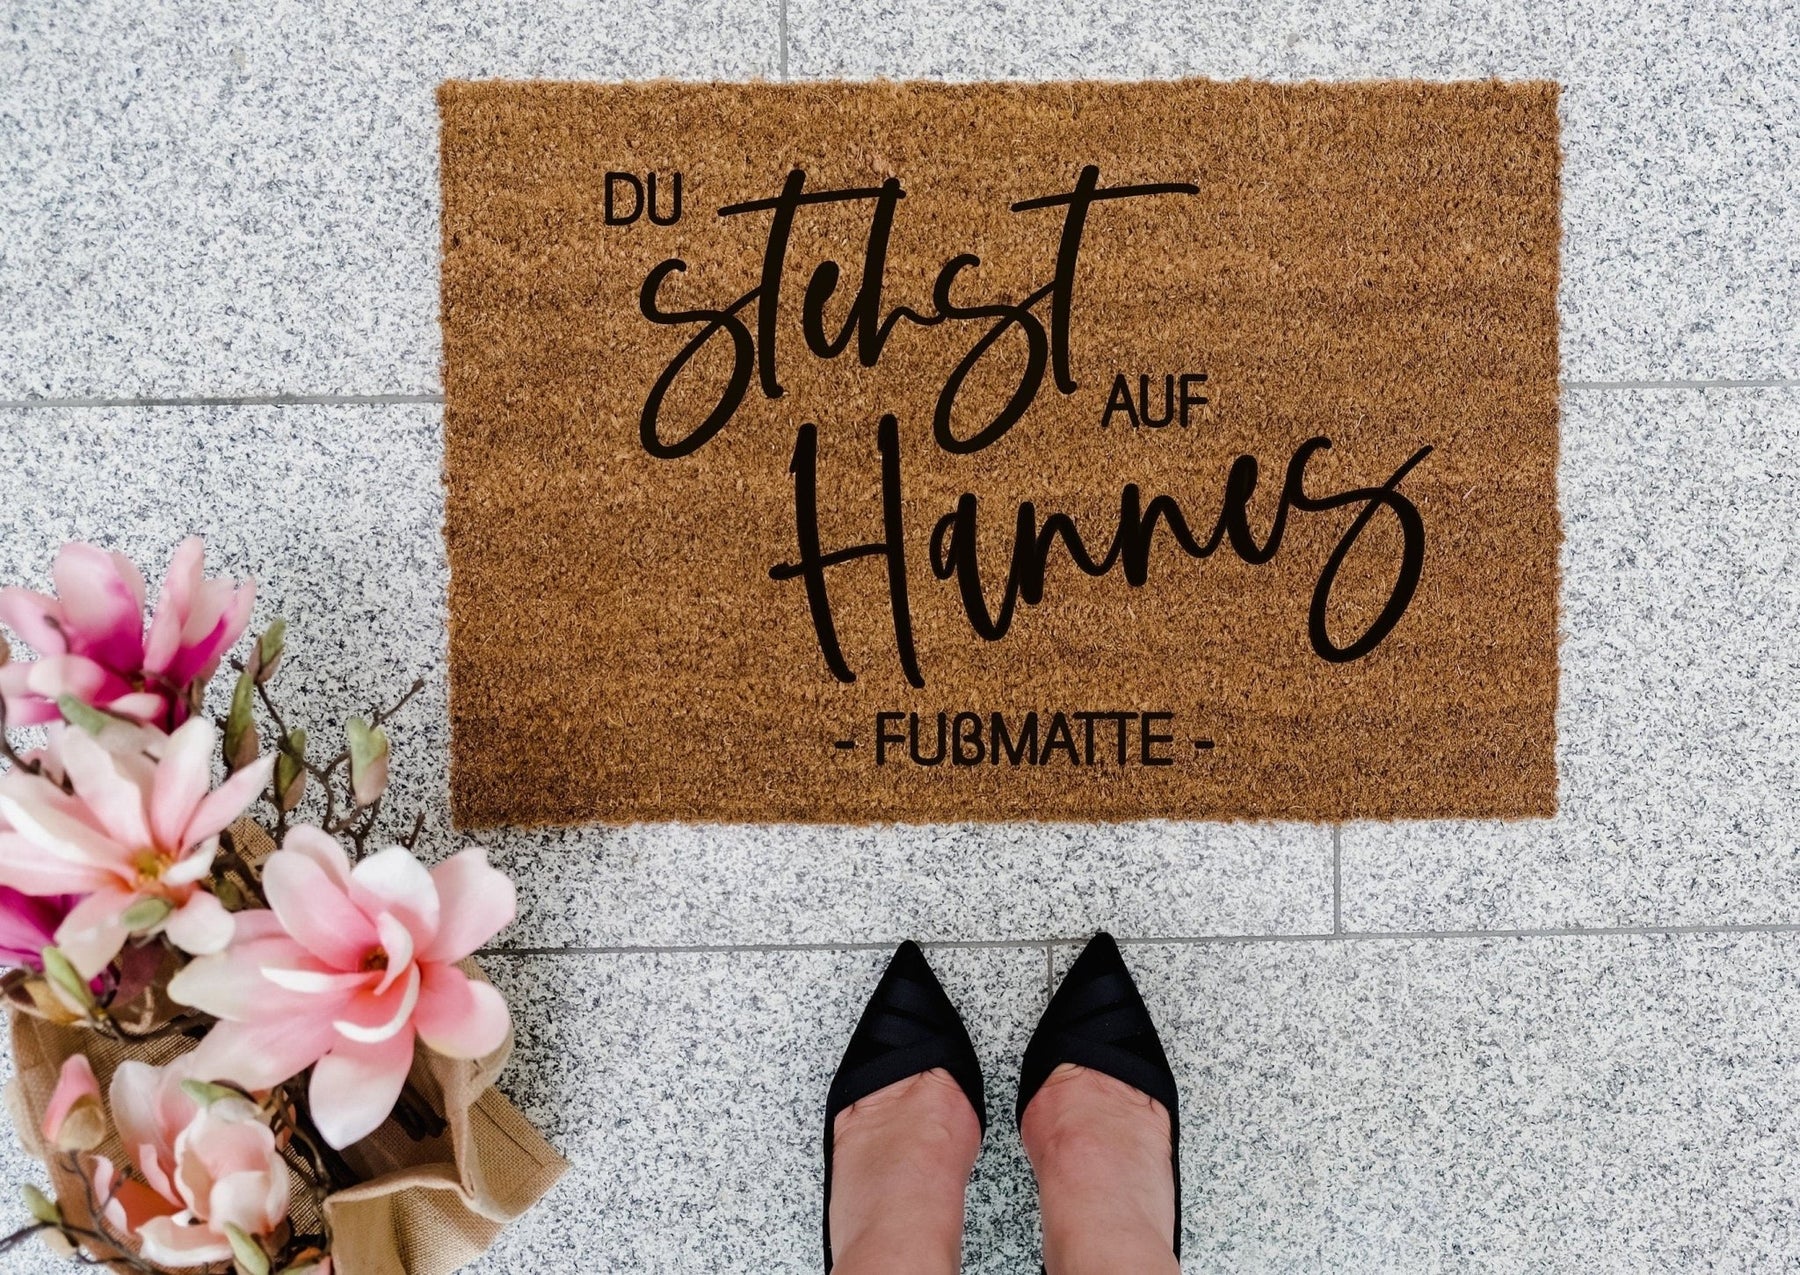 DU stehst
AUF
Hannes
- FUßMATTE -